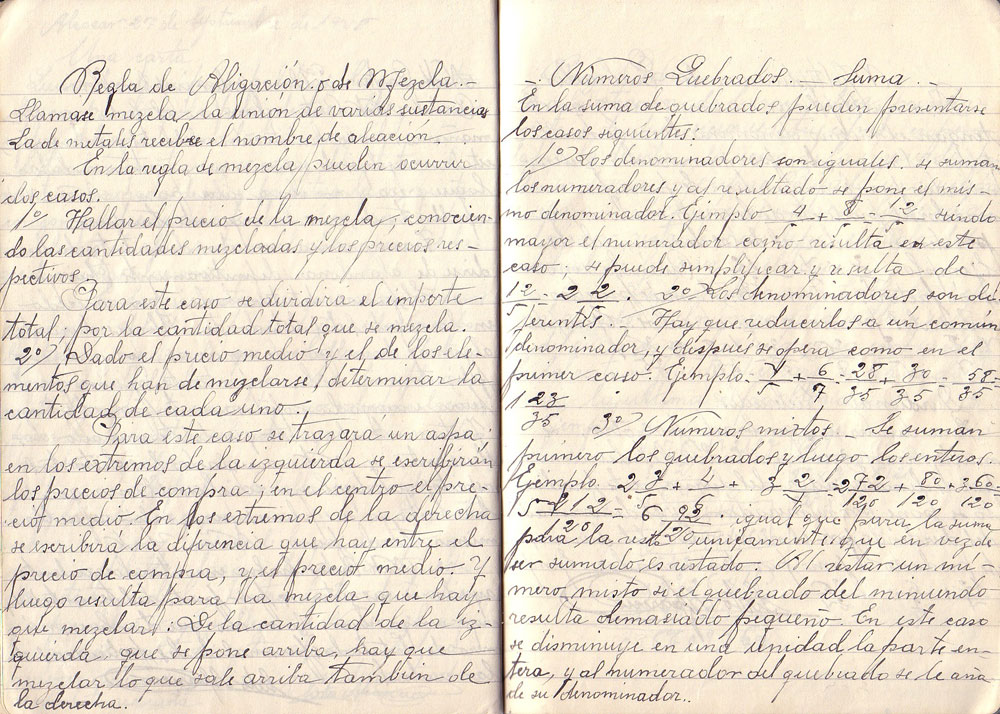 Regla de Aligación o de Mezcla.-
Llamase mezcla la union de varias sustancias
La de metales recibe el nombre de aleacion.
En la regla de mezcla pueden ocurrir
dos casos.
1º Hallar el precio de la mezcla, conocien-
do las cantidades mezcladas y los precios res-
pectivos.
Para este caso se dividira el importe
total, por la cantidad total que se mezcla.
2º) Dado el precio medio y el de los ele-
mentos que han de mezclarse, determinar la
cantidad de cada uno.
Para este caso se trazará un aspa,
en los extremos de la izquierda se escribirán
los precios de compra, en el centro el pre-
cio medio. En los extremos de la derecha
se escribirá la diferencia que hay entre el
precio de compra, y el precio medio. Y
luego resulta para la mezcla que hay
que mezclar: De la cantidad de la iz-
quierda, que se pone arriba, hay que
mezclar lo que sale arriba tambien de
la derecha.
-. Números Quebrados. - Suma. -
En la suma de quebrados, pueden presentarse
los casos siguientes:
1º) Los denominadores son iguales, se suman
los numeradores y al resultado se pone el mis-
mo denominador. Ejimplo 4/5 + 8/5 = 12/5 siendo
mayor el numerador como resulta en este
caso, se puede simplificar y resulta de
12/5 = 2 2/5. 2º) Los denominadores son di-
ferentes. - Hay que reducirlos a un común
denominador, y despues se opera como en el
primer caso. Ejimplo. 4/5 + 6/7 = 28/35 + 30/35 = 58/35
1 23/35 3º) Números mixtos - Se suman
primero los quebrados y luego los enteros.
Ejimplo.
igual que para la suma
para la resta unicamente que en vez de
ser sumado es restado. Al restar un nú-
mero misto si el quebrado del minuendo
resulta demasiado pequeño. En este caso
se disminuye en una unidad la parte en-
tera, y al numerador del quebrado se le aña-
de su denominador.